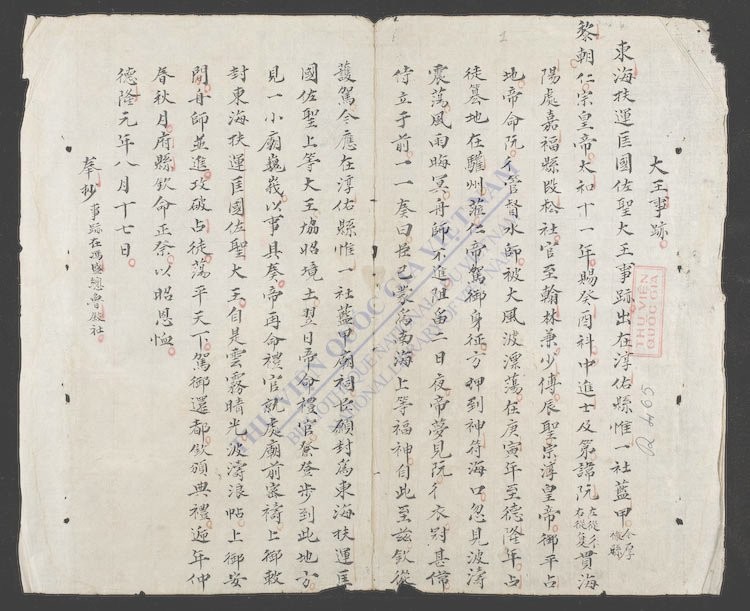 大王事跡
東海扶運匡國佐聖大王事跡出在淳佑縣惟一社藍甲
黎朝仁宗皇帝太和十一年賜癸酉科中進士及第諱阮左從彳右從复貫海
陽處嘉福縣段松社官至翰林兼少傅辰聖宗淳皇帝御平占
地帝命阮彳管督水師被大風波漂蕩在庚寅年至德隆年占
徒簒地在驩州仁帝駕御身征方狎到神符海口忽見波濤
震蕩風雨晦冥舟師不進阻留二日夜帝夢見阮彳衣冠甚偉
侍立于前一一奏曰臣已蒙為南海上等福神自此至玆欽從
護駕今應在淳佑縣惟一社藍甲廟祠臣願封為東海扶運匡
國佐聖上等大王協昭境土翌日帝命禮官登步到此地方
見一小廟巍峩以事具奏帝再命禮官就處廟前密禱上御敕
封東海扶運匡國佐聖大王自是雲霧晴光波濤浪帖上御安
開舟師並進攻破占徒蕩平天下駕御還都欽頒典禮遞年仲
春秋月府縣欽命正祭以昭恩恤
德隆元年八月十七日
奉抄事跡在馮盛總魯殿社
THƯ VIỆN
QUỐC GIA
1
THƯ VIỆN QUỐC GIA VIỆT NAM
BIBLIOTHEQUE NATIONALE DU VIETNAM
NATIONAL LIBRARY OF VIETNAM